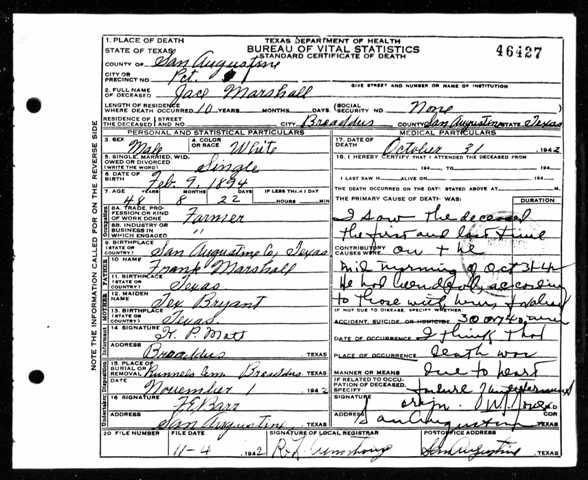 TEXAS DEPARTMENT OF HEALTH
BUREAU OF VITAL STATISTICS
STANDARD CERTIFICATE OF DEATH
46427
NOTE THE INFORMATION CALLED FOR ON THE REVERSE SIDE
1. PLACE OF DEATH
STATE OF TEXAS
COUNTY OF San Augustine
CITY OR PRECINCT NO. Pct.
GIVE STREET AND NUMBER OR NAME OF INSTITUTION
2. FULL NAME OF DECEASED Jace Marshall
LENGTH OF RESIDENCE WHERE DEATH OCCURRED 10 YEARS MONTHS DAYS (SOCIAL SECURITY NO. None
RESIDENCE OF THE DECEASED (STREET AND NO. CITY Broaddus COUNTY San Augustine STATE Texas
PERSONAL AND STATISTICAL PARTICULARS
3. SEX Male 4. COLOR OR RACE White
5. SINGLE, MARRIED, WIDOWED OR DIVORCED (WRITE THE WORD) Single
6. DATE OF BIRTH Feb. 9, 1894
7. AGE YEARS MONTHS DAYS IF LESS THAN 1 DAY
48 8 22 HOURS MIN
Occupation
8A. TRADE, PROFESSION OR KIND OF WORK DONE Farmer
8B. INDUSTRY OR BUSINESS IN WHICH ENGAGED "
9. BIRTHPLACE (STATE OR COUNTRY) San Augustine Co, Texas
FATHER
10 NAME Frank Marshall
11. BIRTHPLACE (STATE OR COUNTRY) Texas
MOTHER
12. MAIDEN NAME Bryant
13. BIRTHPLACE (STATE OR COUNTRY) Texas
Informant
14 SIGNATURE
ADDRESS Broaddus TEXAS
Disposition
15. PLACE OF BURIAL OR REMOVAL Runnels Cem Broaddus TEXAS
DATE November 1 1942
Undertaker
16 SIGNATURE
ADDRESS San Augustine TEXAS
MEDICAL PARTICULARS
17. DATE OF DEATH October 31 1942
18. I HEREBY CERTIFY THAT I ATTENDED THE DECEASED FROM
19 TO 19
I LAST SAW H ALIVE ON 19
THE DEATH OCCURRED ON THE DATE STATED ABOVE AT M.
THE PRIMARY CAUSE OF DEATH WAS: DURATION
I saw the deceased
the first and last time
CONTRIBUTORY CAUSES WERE on the
mid morning of Oct 31-42
He had been dead, according
to those with him
IF NOT DUE TO DISEASE, SPECIFY WHETHER
ACCIDENT, SUICIDE, OR HOMICIDE 30 or 40 min
DATE OF OCCURRENCE I think that
PLACE OF OCCURRENCE death was
MANNER OR MEANS due to heart
IF RELATED TO OCCUPATION OF DECEASED, SPECIFY failure of undetermined
SIGNATURE origin.
ADDRESS San Augustine TEXAS
20 FILE NUMBER FILE DATE SIGNATURE OF LOCAL REGISTRAR POSTOFFICE ADDRESS
11-4 1942 San Augustine TEXAS